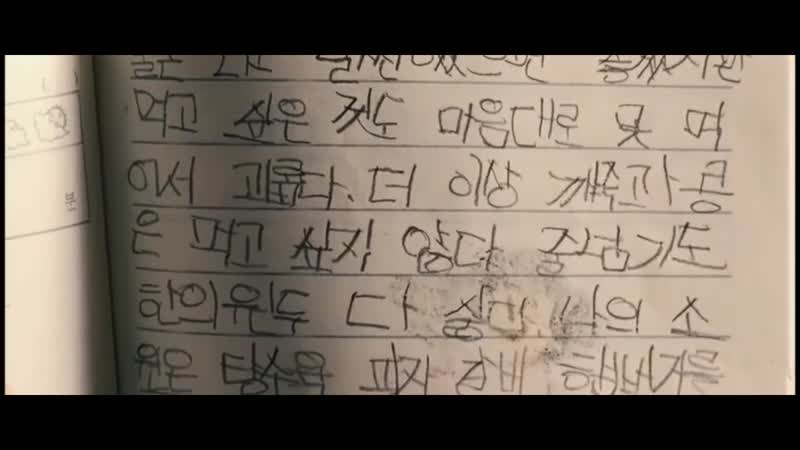 날씬했으면 좋겠지만
먹고 싶은 것도 마음대로 못 먹
어서 괴롭다. 더 이상 깨죽과 콩
은 먹고 싶지 않다 줄넘기도
한의원도 다 싫다. 나의 소
원은 탕수육 피자 갈비 햄버거를
분